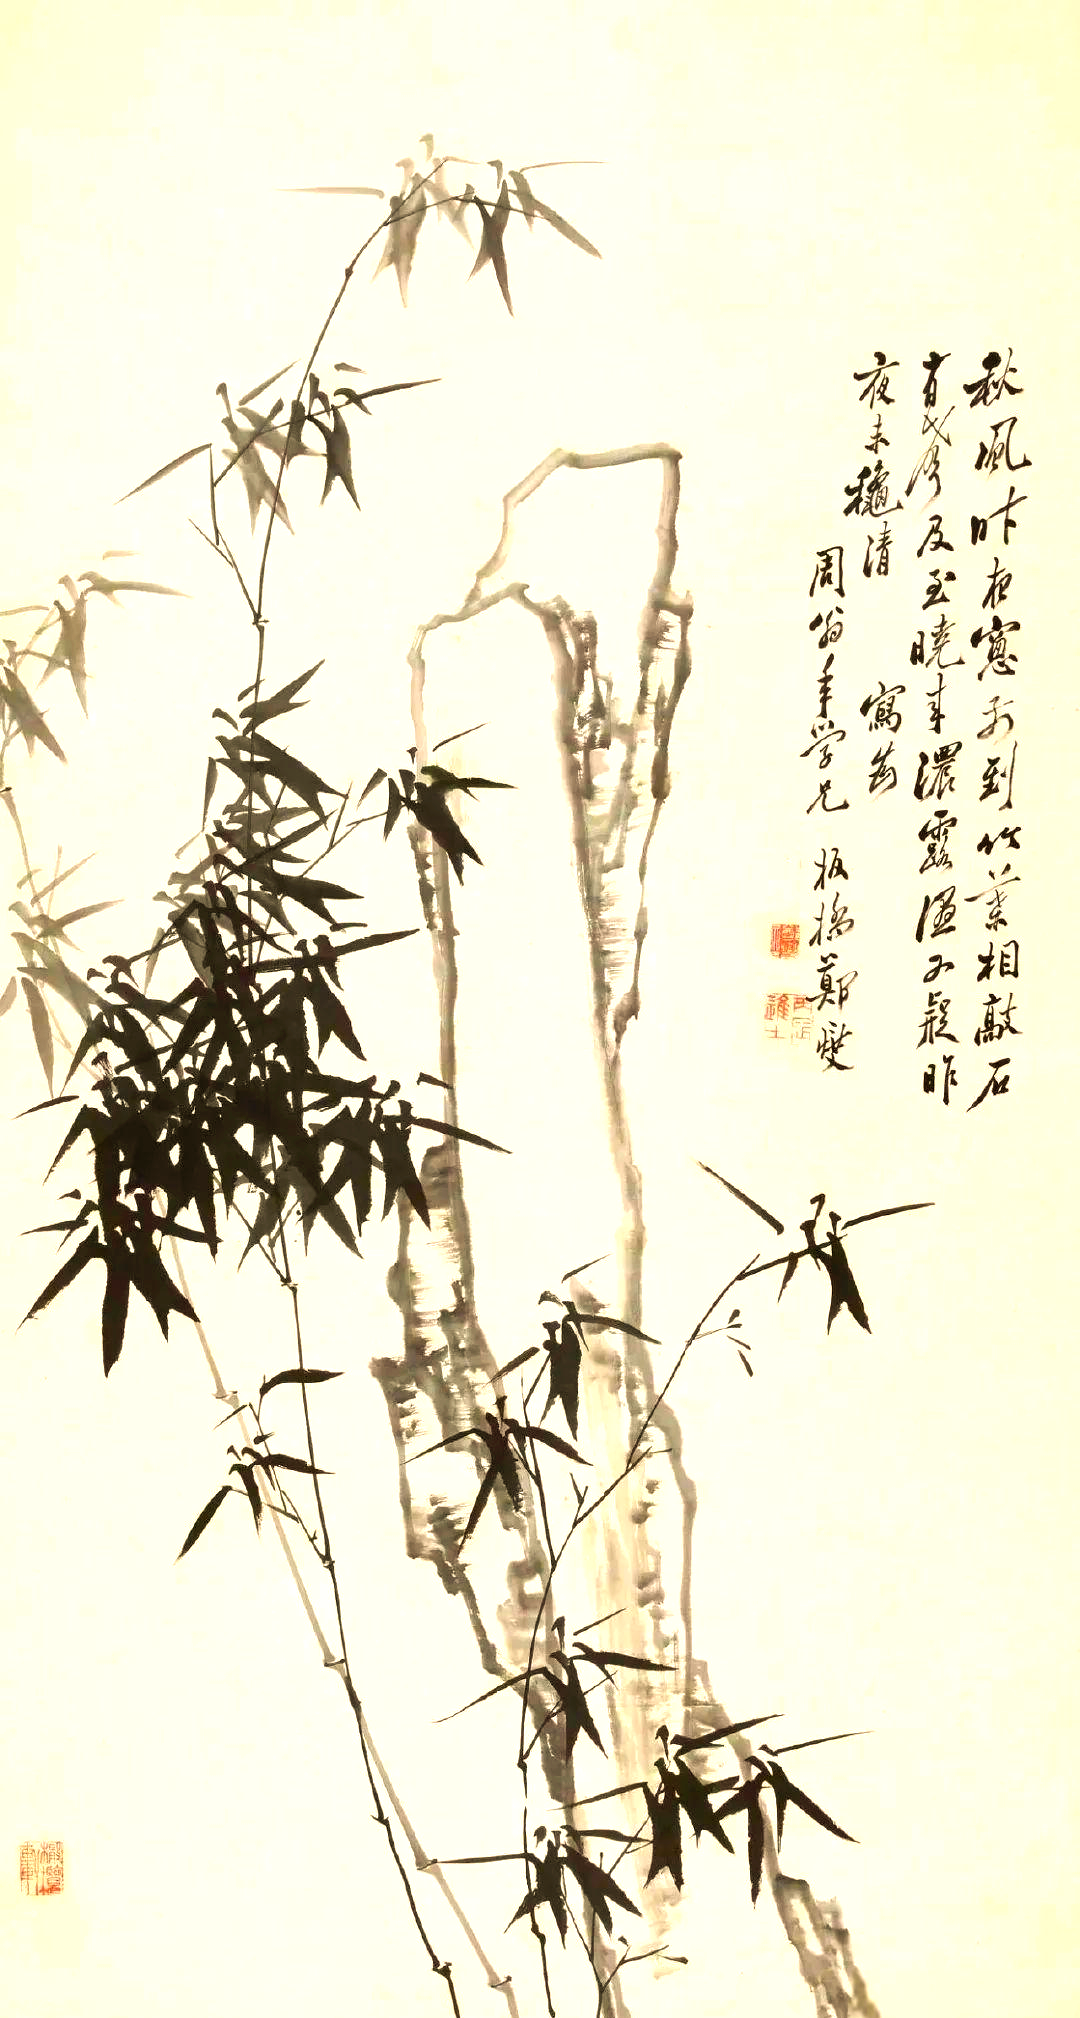 秋風昨夜窓前到竹葉相敲石
有聲及至曉來濃露濕又疑昨
夜未穐清　寫為
周翁年學兄　板橋鄭燮